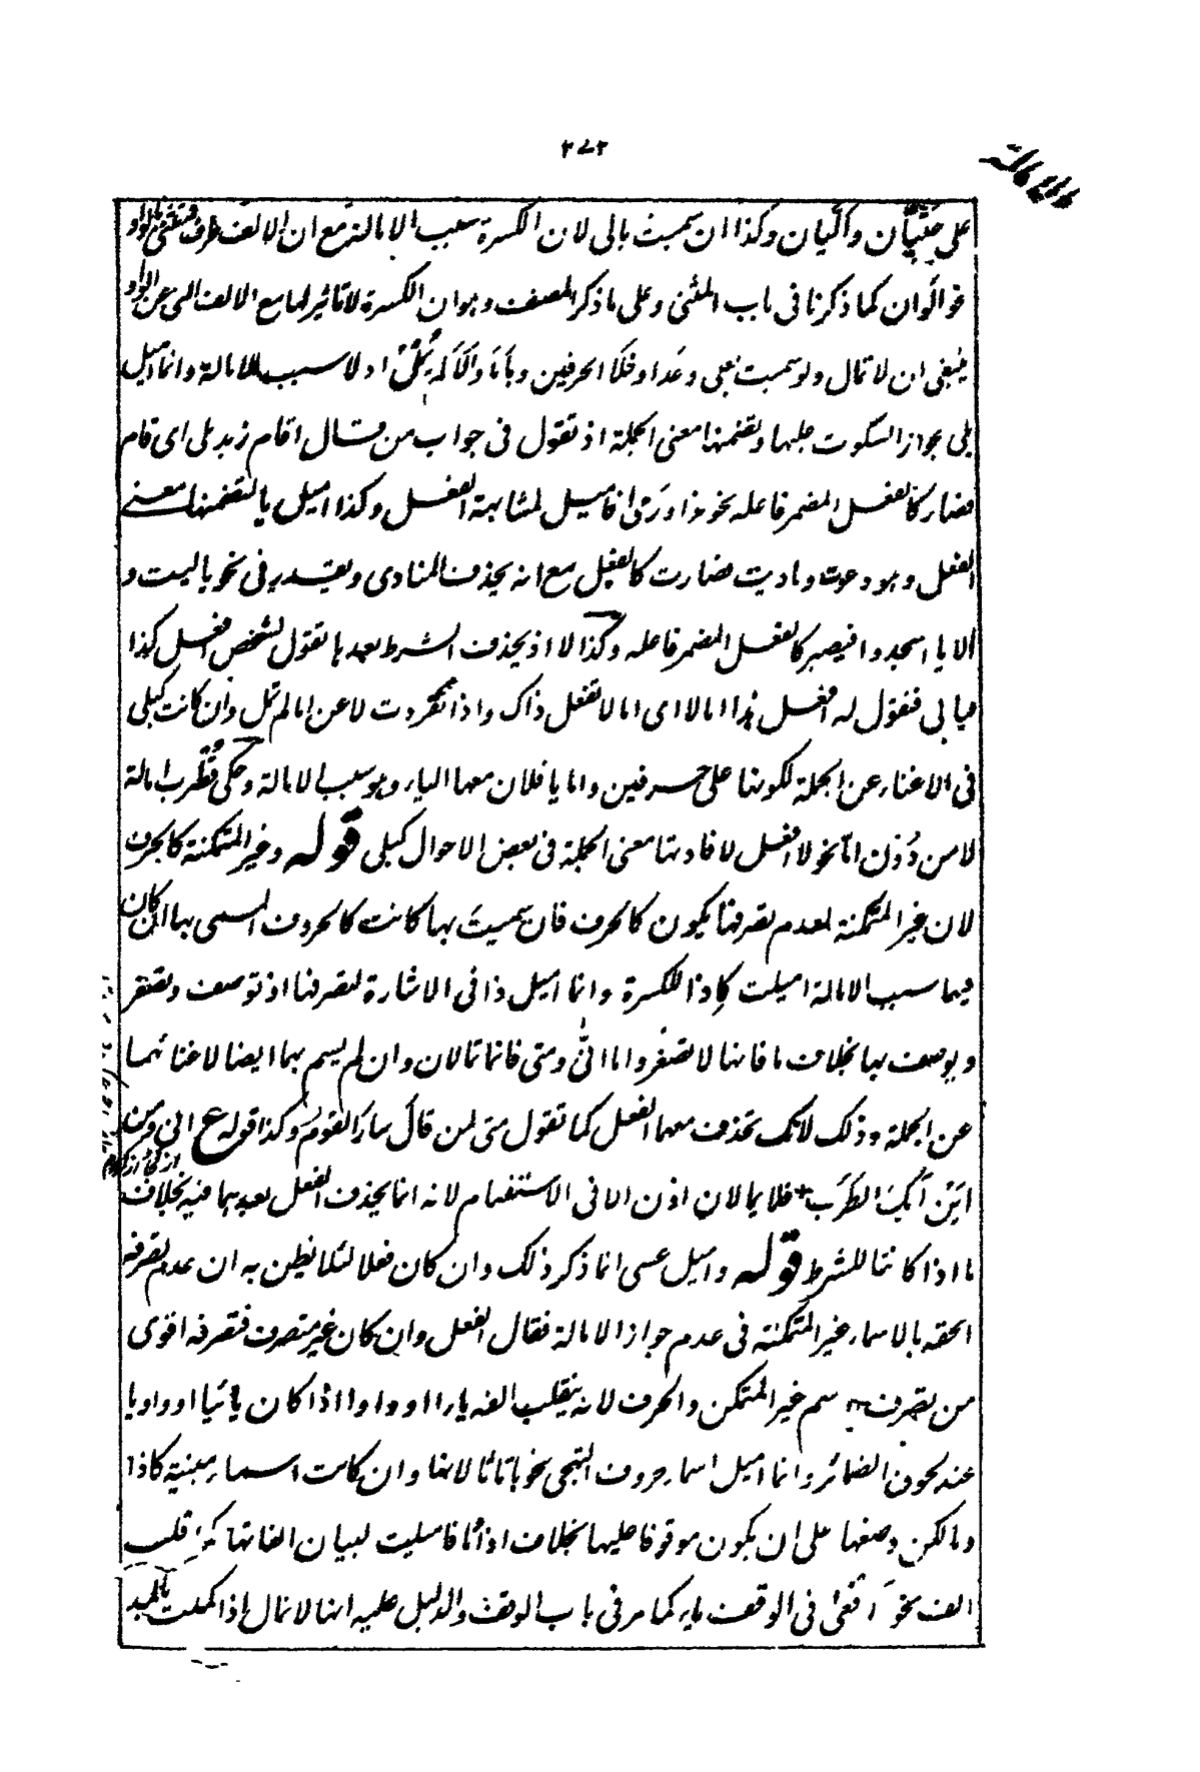 ٢٧٢
على حتيان والّيان وكذا ان سميت بالى لان الكسرة سبب الامالة مع ان الالف طرف
نحو الوان كما ذكرنا فى باب المثنى وعلى ما ذكر المصنف وهو ان الكسرة لا تاثير لها مع الالف التى عن الواو
ينبغى ان لا تمال ولو سميت بعلى وعدا وخلا الحرفين وبأمّا وألا لم يُمَلْ اذ لا سبب للامالة وانما اميل
بلى بجواز السكوت عليها وتضمنها معنى الجملة اذ تقول فى جواب من قال اقام زيد بلى اى قام
فصار كالفعل المضمر فاعله نحو غزا ورمى فاميل لمشابهة الفعل وكذا اميل يا لتضمنها معنى
الفعل وهو دعوت وناديت فصارت كالفعل مع انه يحذف المنادى ويقدر فى نحو ياليت و
الا يا اسجدوا فيصير كالفعل المضمر فاعله وكذا لا اذ يحذف الشرط بعدها تقول لشخص افعل كذا
فيابى فتقول له افعل هذا امالا اى اما لا تفعل ذاك واذا تجردت لا عن اما لم تمل وان كانت كبلى
فى الاغناء عن الجملة لكونها على حرفين واما يا فلان معها الياء وهو سبب الامالة وحكى قُطْرب امالة
لا من دون امّا نحو لا افعل لافادتها معنى الجملة فى بعض الاحوال كبلى قوله وغير المتمكنة كالحرف
لان غير المتمكنة لعدم تصرفها يكون كالحرف فان سميت بها كانت كالحروف المسمى بها ان كان
فيها سبب الامالة اميلت كاذا للكسرة وانما اميل ذا فى الاشارة لتصرفها اذ توصف وتصغر
ويوصف بها بخلاف ما فانها لا تصغر واما انّى ومتى فانما تمالان وان لم يسم بهما ايضا لاغنائهما
عن الجملة وذلك لانك تحذف معهما الفعل كما تقول متى لمن قال سار القوم وكذا قوله ع انى ومن
اين آبك الطرب * فلا يمالان اذن الا فى الاستفهام لانه انما يحذف الفعل بعدهما فيه بخلاف
ما اذا كانتا للشرط قوله واميل عسى انما ذكر ذلك وان كان فعلا لئلا يظن به ان عدم تصرفه
الحقه بالاسماء غير المتمكنة فى عدم جواز الامالة فقال الفعل وان كان غير متصرف فتصرفه اقوى
من تصرف الاسم غير المتمكن والحرف لانه ينقلب الفه ياء او واوا اذا كان يائيا او واويا
عند لحوق الضمائر وانما اميل اسماء حروف التهجى نحو با تا ثا لانها وان كانت اسماء مبنية كاذا
وما لكن وضعها على ان يكون موقوفا عليها بخلاف اذا وما فاميلت لبيان الفاتها كما قلب
الف نحو افعى فى الوقف ياء كما مر فى باب الوقف والدليل عليه انها لا تمال اذا كملت بالمد